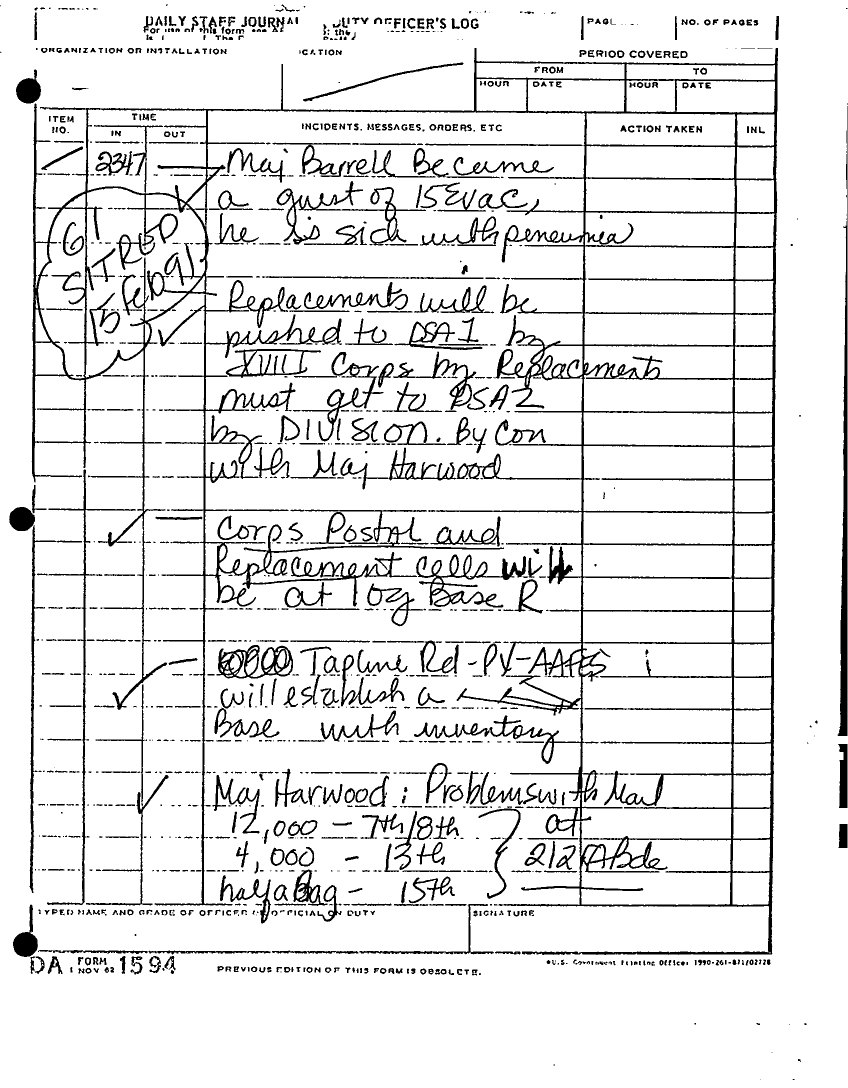 DAILY STAFF JOURNAL DUTY OFFICER'S LOG
For use of this form
PAGE
NO. OF PAGES
ORGANIZATION OR INSTALLATION
PERIOD COVERED
FROM
TO
HOUR DATE HOUR DATE
ITEM NO.
TIME
IN OUT
INCIDENTS, MESSAGES, ORDERS, ETC
ACTION TAKEN
INL
2347 — Maj Barrell Became
a guest of 15 Evac,
he is sick with peneumia
G1
SITREP
15 Feb 91
Replacements will be
pushed to DSA1 by
XVIII Corps by Replacements
must get to DSA2
by DIVISION. By Con
with Maj Harwood
— Corps Postal and
Replacement cells will
be at Log Base R
— Tapline Rd - PX - AAFES
will establish a
Base with inventory
Maj Harwood: Problems with Mail
12,000 - 7th/8th
at
4,000 - 13th
212 ABde
half a Bag - 15th
TYPED NAME AND GRADE OF OFFICER OR OFFICIAL ON DUTY
SIGNATURE
DA FORM 1 NOV 62 1594
PREVIOUS EDITION OF THIS FORM IS OBSOLETE.
*U.S. Government Printing Office: 1990-261-871/02728